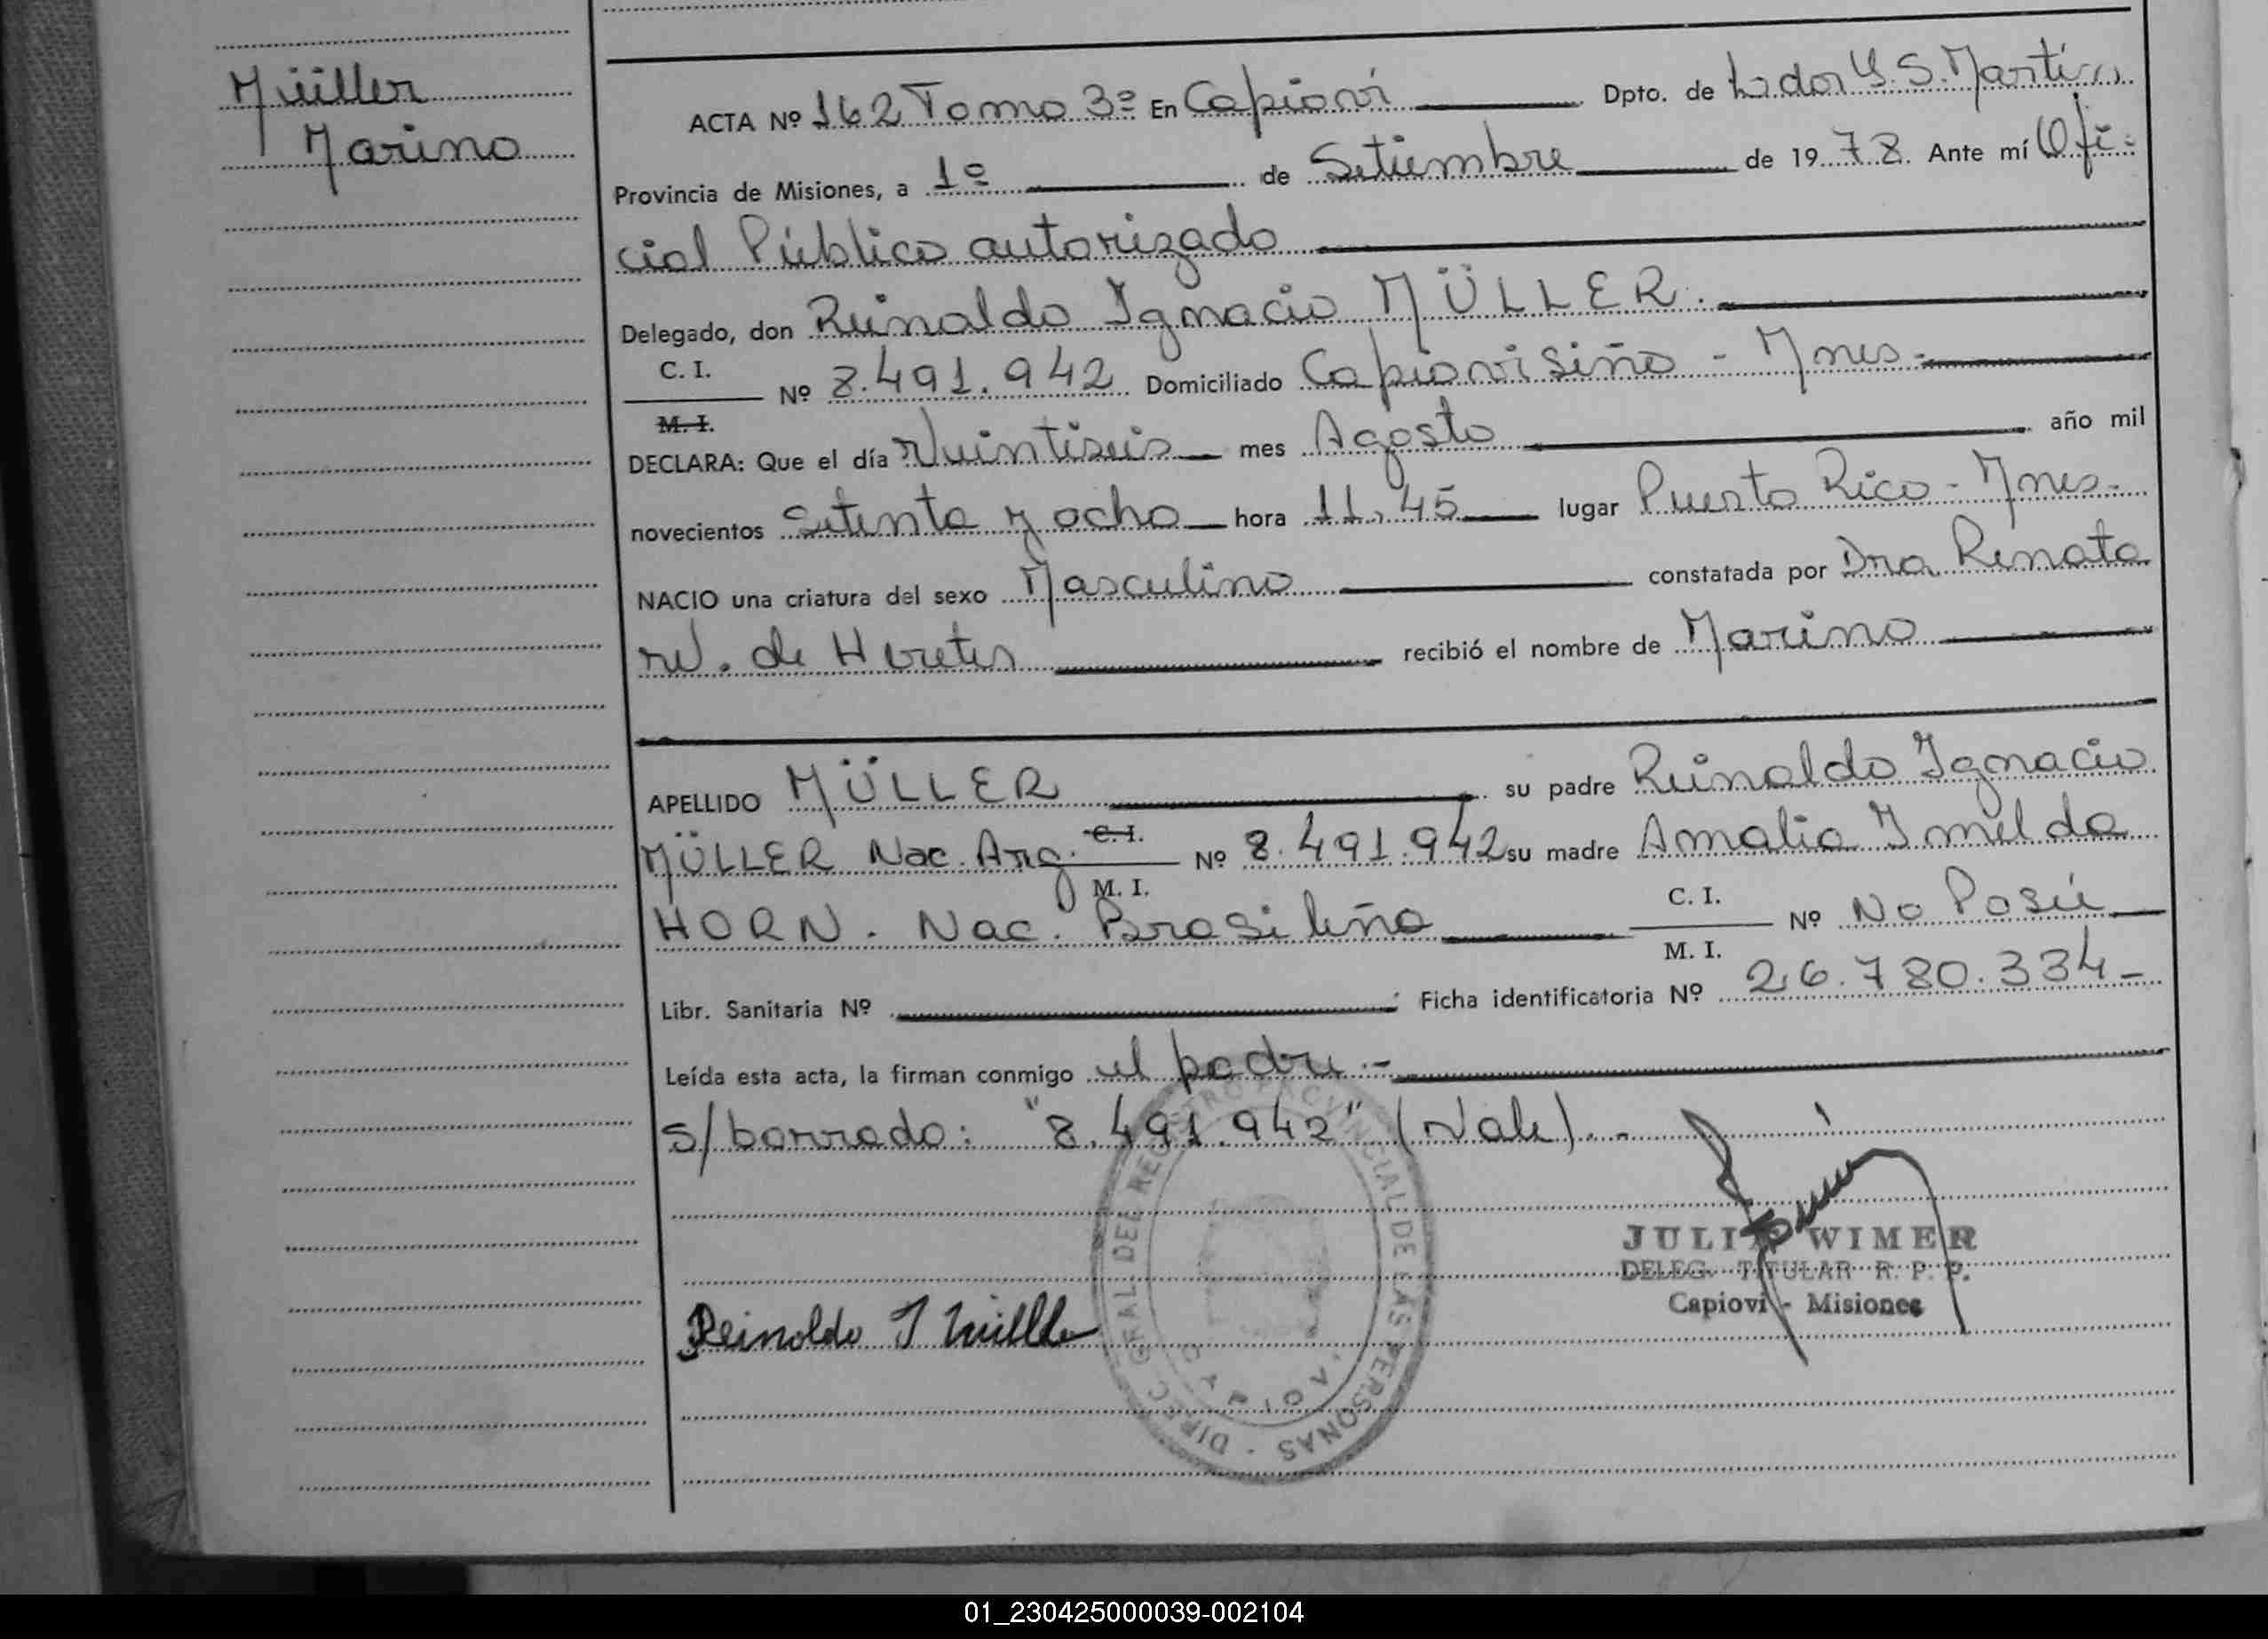 Müller
Marino
ACTA Nº 162 Tomo 3º En Capioví Dpto. de Ldor G. S. Martín
Provincia de Misiones, a 1º de Setiembre de 1978. Ante mí Ofi-
cial Público autorizado
Delegado, don Reinaldo Ignacio MÜLLER.
C. I.
Nº 8.491.942 Domiciliado Capiovisiño - Mnes.-
M. I.
DECLARA: Que el día Veintiseis mes Agosto año mil
novecientos Setenta y ocho hora 11,45 lugar Puerto Rico - Mnes.-
NACIO una criatura del sexo Masculino constatada por Dra Renata
rV. de Heretes recibió el nombre de Marino
APELLIDO MÜLLER su padre Reinaldo Ignacio
MÜLLER Nac. Arg. C. I. Nº 8.491.942 su madre Amalia Imelda
M. I.
HORN. Nac. Brasileña C. I. Nº No Poseé
M. I.
Libr. Sanitaria Nº Ficha identificatoria Nº 26.780.334-
Leída esta acta, la firman conmigo el padre.-
s/borrado: "8.491.942" (Vale).-
DIREC. GRAL DEL REGISTRO PROVINCIAL DE LAS PERSONAS
JULIO WIMER
DELEG. TITULAR R. P. P.
Capioví - Misiones
Reinoldo I Müller
01_230425000039-002104